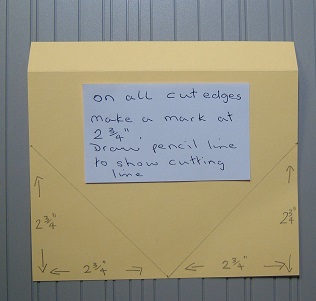 on all cut edges
make a mark at
2 3/4".
Draw pencil line
to show cutting
line
2 3/4"
2 3/4"
2 3/4"
2 3/4"